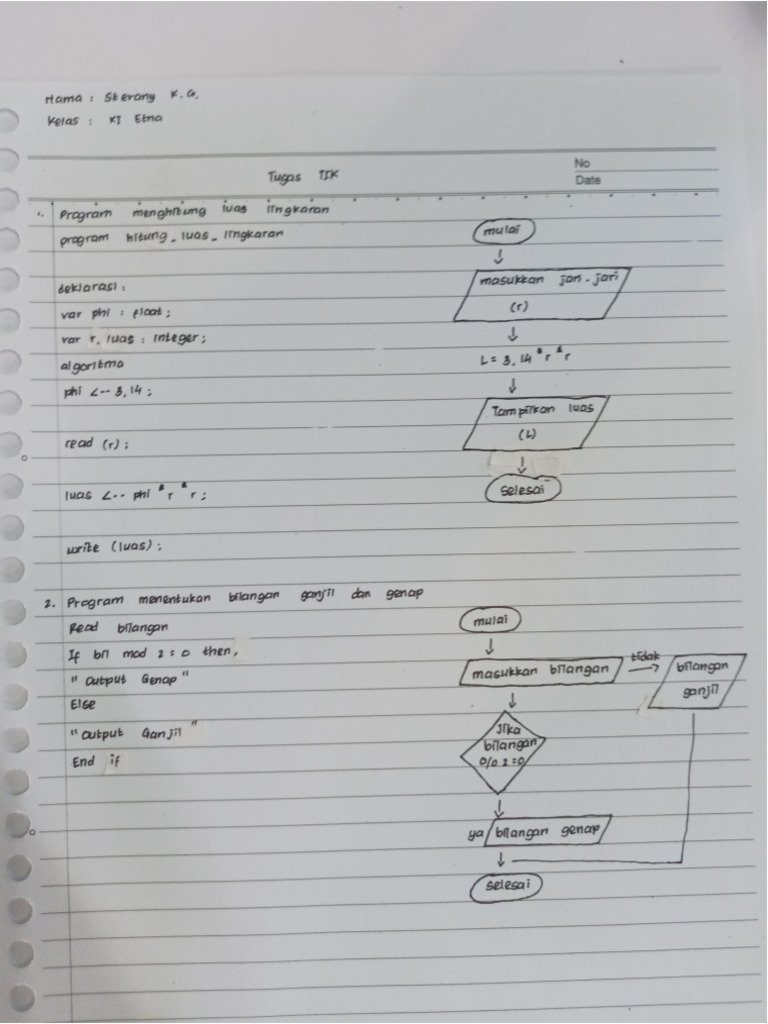 Nama : Sterany K.G.
Kelas : XI Etna
Tugas TIK
No
Date
1. Program menghitung luas lingkaran
program hitung_luas_lingkaran
deklarasi :
var phi : float ;
var r, luas : integer ;
algoritma
phi <-- 3,14 ;
read (r) ;
luas <-- phi * r * r ;
write (luas) ;
mulai
masukkan jari-jari
(r)
L = 3,14 * r * r
Tampilkan luas
(L)
selesai
2. Program menentukan bilangan ganjil dan genap
Read bilangan
If bil mod 2 = 0 then,
" Output Genap "
Else
" Output Ganjil "
End if
mulai
masukkan bilangan
tidak
bilangan
ganjil
Jika
bilangan
% 2 = 0
ya
bilangan genap
selesai